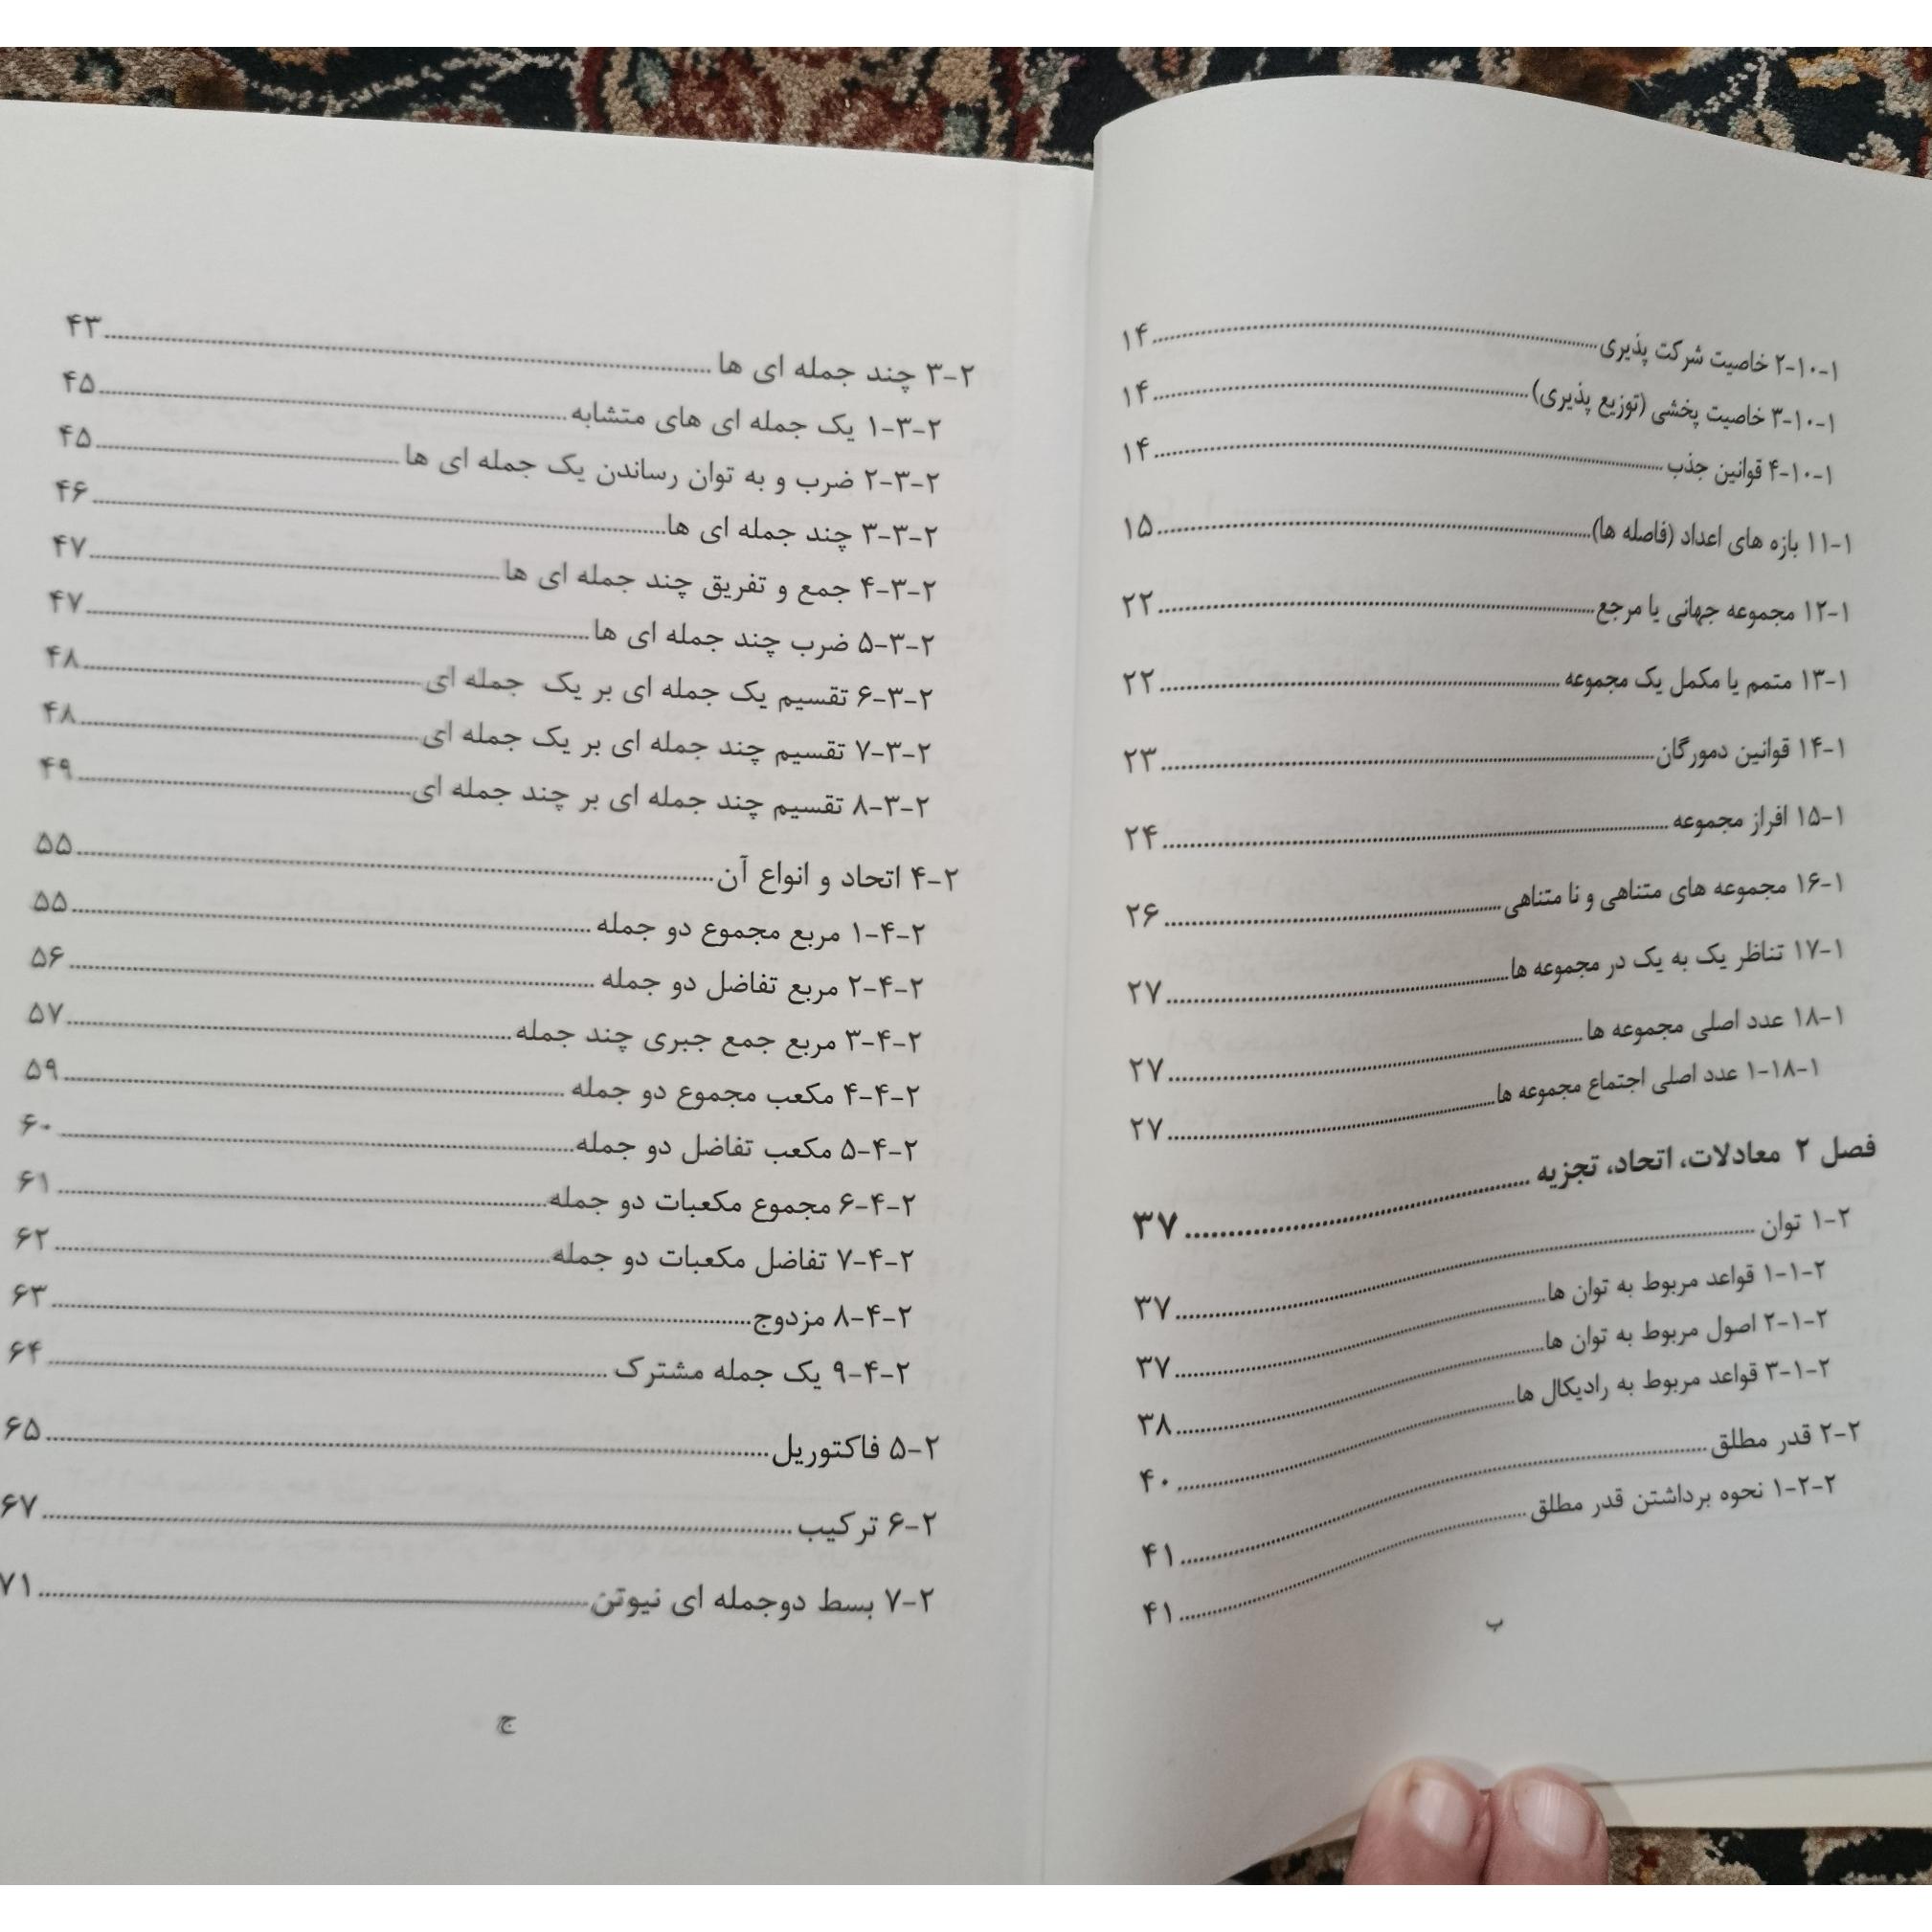 ۱-۱۰-۲ خاصیت شرکت پذیری ۱۴
۱-۱۰-۳ خاصیت پخشی (توزیع پذیری) ۱۴
۱-۱۰-۴ قوانین جذب ۱۴
۱-۱۱ بازه های اعداد (فاصله ها) ۱۵
۱-۱۲ مجموعه جهانی یا مرجع ۲۲
۱-۱۳ متمم یا مکمل یک مجموعه ۲۲
۱-۱۴ قوانین دمورگان ۲۳
۱-۱۵ افراز مجموعه ۲۴
۱-۱۶ مجموعه های متناهی و نا متناهی ۲۶
۱-۱۷ تناظر یک به یک در مجموعه ها ۲۷
۱-۱۸ عدد اصلی مجموعه ها ۲۷
۱-۱۸-۱ عدد اصلی اجتماع مجموعه ها ۲۷
فصل ۲ معادلات، اتحاد، تجزیه ۳۷
۲-۱ توان ۳۷
۲-۱-۱ قواعد مربوط به توان ها ۳۷
۲-۱-۲ اصول مربوط به توان ها ۳۸
۲-۱-۳ قواعد مربوط به رادیکال ها ۴۰
۲-۲ قدر مطلق ۴۱
۲-۲-۱ نحوه برداشتن قدر مطلق ۴۱
پ
۲-۳ چند جمله ای ها ۴۳
۲-۳-۱ یک جمله ای های متشابه ۴۵
۲-۳-۲ ضرب و به توان رساندن یک جمله ای ها ۴۵
۲-۳-۳ چند جمله ای ها ۴۶
۲-۳-۴ جمع و تفریق چند جمله ای ها ۴۷
۲-۳-۵ ضرب چند جمله ای ها ۴۷
۲-۳-۶ تقسیم یک جمله ای بر یک جمله ای ۴۸
۲-۳-۷ تقسیم چند جمله ای بر یک جمله ای ۴۸
۲-۳-۸ تقسیم چند جمله ای بر چند جمله ای ۴۹
۲-۴ اتحاد و انواع آن ۵۵
۲-۴-۱ مربع مجموع دو جمله ۵۵
۲-۴-۲ مربع تفاضل دو جمله ۵۶
۲-۴-۳ مربع جمع جبری چند جمله ۵۷
۲-۴-۴ مکعب مجموع دو جمله ۵۹
۲-۴-۵ مکعب تفاضل دو جمله ۶۰
۲-۴-۶ مجموع مکعبات دو جمله ۶۱
۲-۴-۷ تفاضل مکعبات دو جمله ۶۲
۲-۴-۸ مزدوج ۶۳
۲-۴-۹ یک جمله مشترک ۶۴
۲-۵ فاکتوریل ۶۵
۲-۶ ترکیب ۶۷
۲-۷ بسط دوجمله ای نیوتن ۷۱
ج